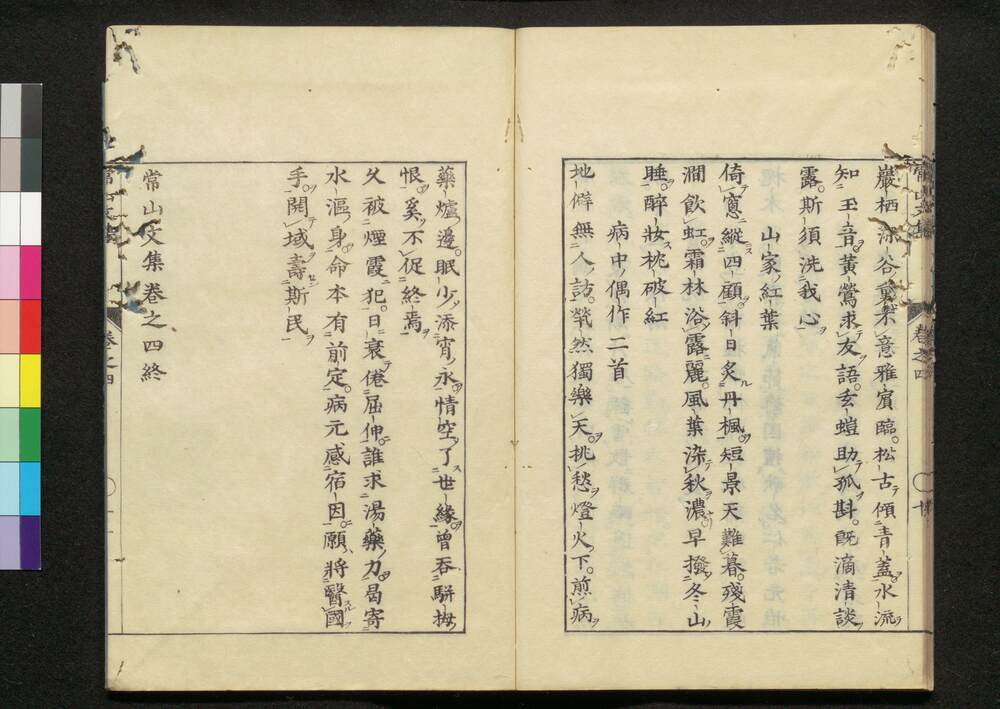 巖栖深谷裏不意雅賓臨。松古傾青蓋。水流
知玉音。黃鶯求友語。玄螘助孤斟。既滴清談
露。斯須洗我心
山家紅葉
倚窻縱四顧。斜日炙丹楓。短景天難暮。殘霞
澗飲虹。霜林浴露麗。風葉染秋濃。早撥冬山
睡。醉妝枕破紅
病中偶作二首
地僻無人訪。煢然獨樂天。挑愁燈火下。煎病
藥爐邊。眠少添宵永。情空了世緣。曾吞駢拇
恨。奚不促終焉
久被煙霞犯。日衰倦屈伸。誰求湯藥力。曷寄
水漚身。命本有前定。病元感宿因。願將醫國
手。開域壽斯民
常山文集卷之四終